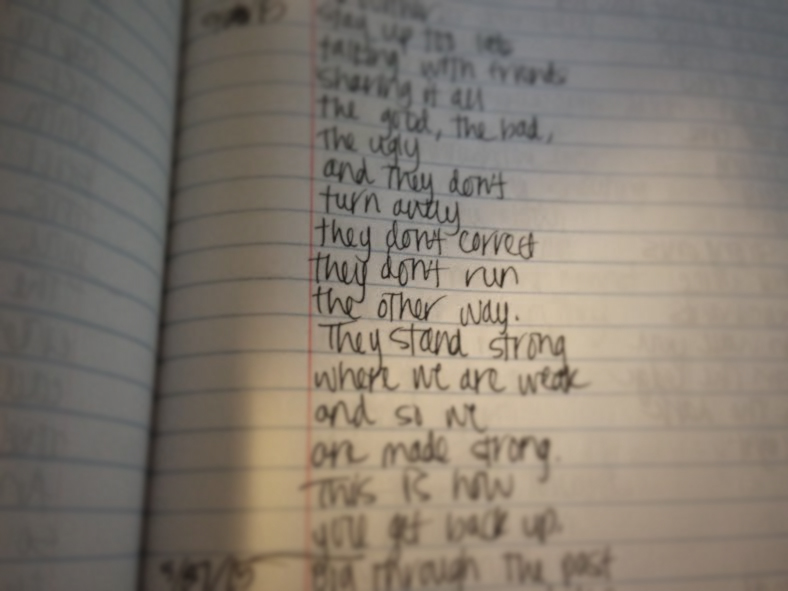 stay up too late
talking with friends
sharing it all
the good, the bad,
the ugly
and they don't
turn away
they don't correct
they don't run
the other way.
They stand strong
where we are weak
and so we
are made strong.
This is how
you get back up.
through the past